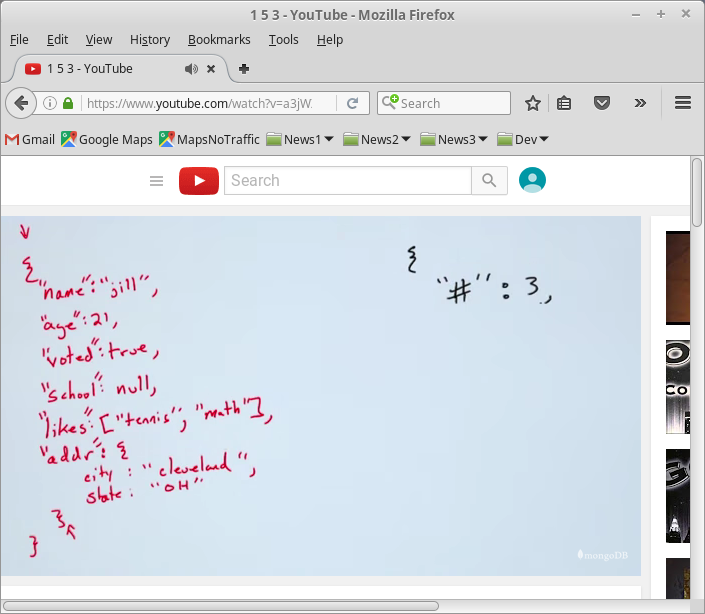 1 5 3 - YouTube - Mozilla Firefox
File Edit View History Bookmarks Tools Help
1 5 3 - YouTube
https://www.youtube.com/watch?v=a3jW
Search
Gmail Google Maps MapsNoTraffic News1 News2 News3 Dev
Search
{
{
"name":"jill",
"#": 3,
"age":21,
"voted":true,
"school": null,
"likes":["tennis", "math"],
"addr": {
city : "cleveland",
state: "OH"
}
}
mongoDB
CO
G